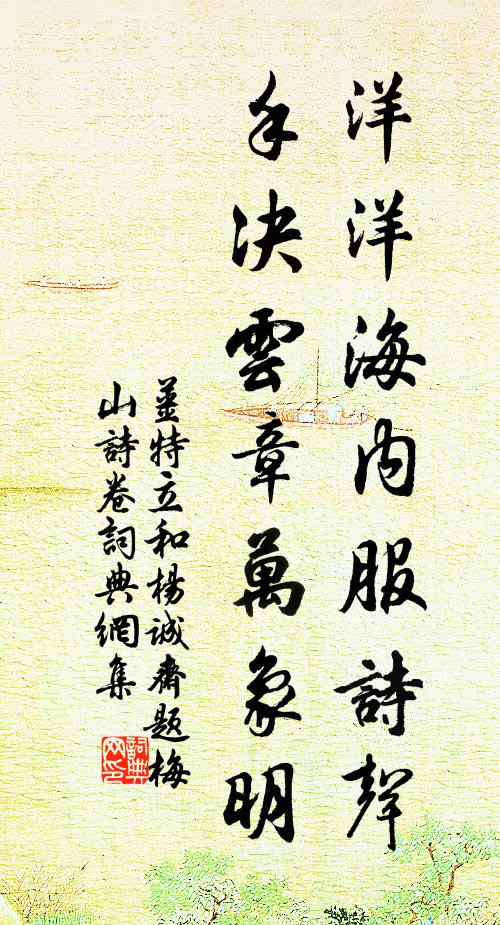 洋洋海内服詩聲
手决雲章萬象明
姜特立和楊誠齋題梅
山詩卷詞典網集
詞典網印